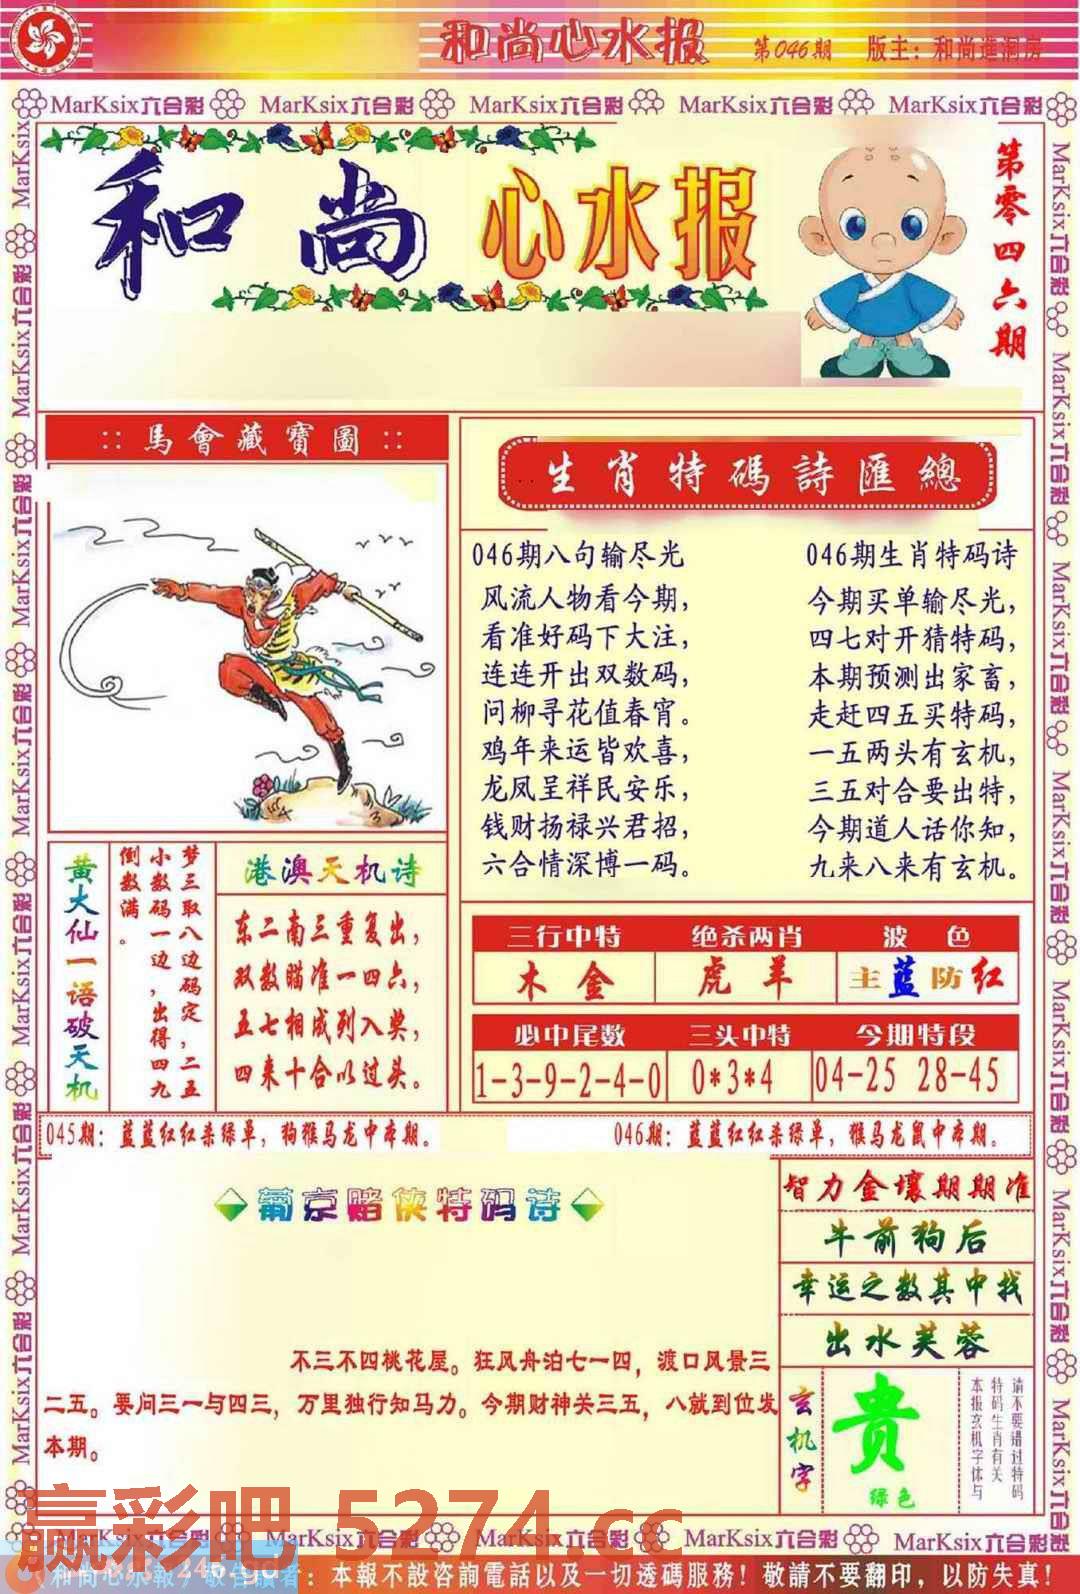 和尚心水报 第046期 版主：和尚進洞房
MarKsix六合彩 MarKsix六合彩 MarKsix六合彩 MarKsix六合彩 MarKsix六合彩
和尚心水报
第零四六期
:: 馬會藏寶圖 ::
生肖特碼詩匯總
046期八句输尽光
风流人物看今期，
看准好码下大注，
连连开出双数码，
问柳寻花值春宵。
鸡年来运皆欢喜，
龙凤呈祥民安乐，
钱财扬禄兴君招，
六合情深博一码。
046期生肖特码诗
今期买单输尽光，
四七对开猜特码，
本期预测出家畜，
走赶四五买特码，
一五两头有玄机，
三五对合要出特，
今期道人话你知，
九来八来有玄机。
黄大仙一语破天机
梦三取八边码定，二五
小数码一边，出得四九
倒数满。
港澳天机诗
东二南三重复出，
双数瞄准一四六，
五七相成列入奖，
四来十合以过头。
三行中特 绝杀两肖 波色
木金 虎羊 主蓝防红
必中尾数 三头中特 今期特段
1-3-9-2-4-0 0*3*4 04-25 28-45
045期：蓝蓝红红杀绿单，狗猴马龙中本期。
046期：蓝蓝红红杀绿单，猴马龙鼠中本期。
葡京赌侠特码诗
不三不四桃花屋。狂风舟泊七一四，渡口风景三
二五。要问三一与四三，万里独行知马力。今期财神关三五，八就到位发
本期。
智力金壤期期准
牛前狗后
幸运之数其中找
出水芙蓉
玄机字
贵
绿色
请不要错过特码
特码生肖有关
本报玄机字体与
赢彩吧 5274.cc
MarKsix六合彩 MarKsix六合彩 MarKsix六合彩 MarKsix六合彩 MarKsix六合彩
246.gd
和尚心水報 敬告讀者：本報不設咨詢電話以及一切透碼服務！敬請不要翻印，以防失真！